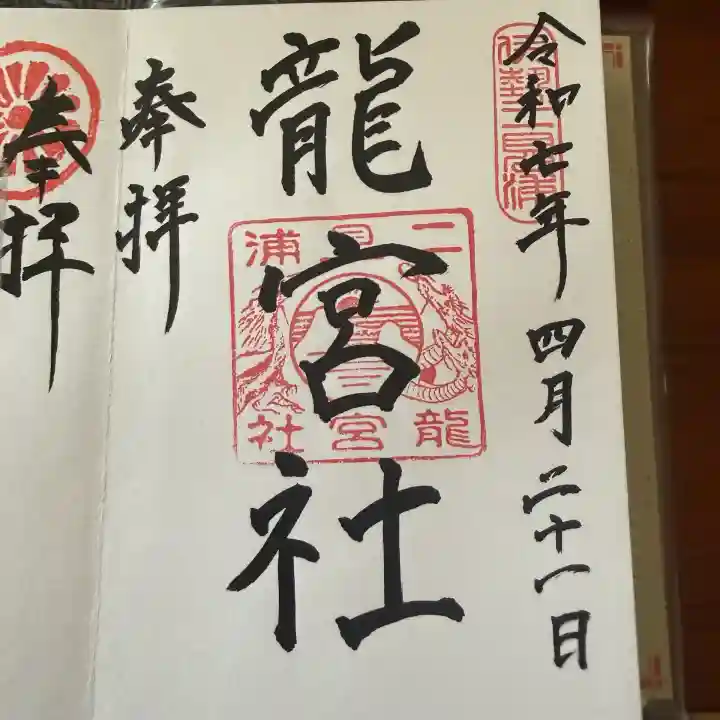 令和七年四月二十一日
伊勢二見浦
龍宮社
二見浦
龍宮社
奉拝
奉拝